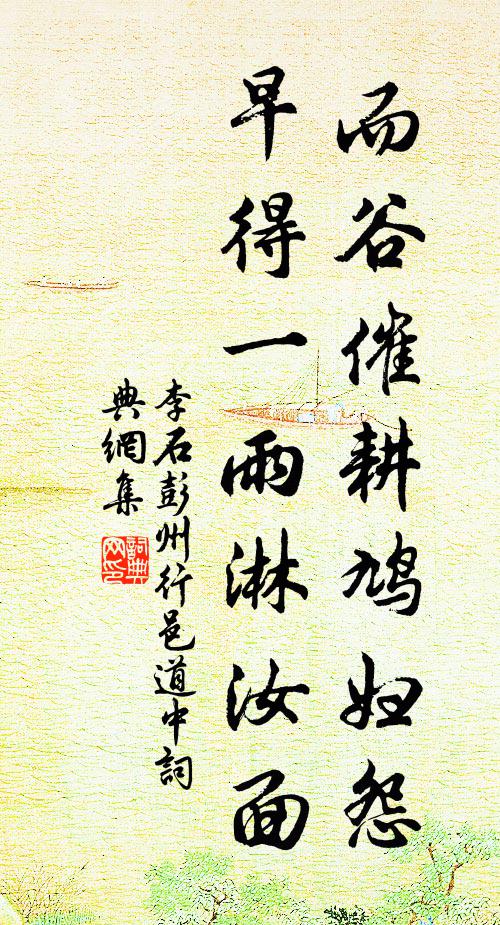 而谷催耕鸠妇怨
早得一雨淋汝面
李石彭州行邑道中詞
典網集
詞典网印